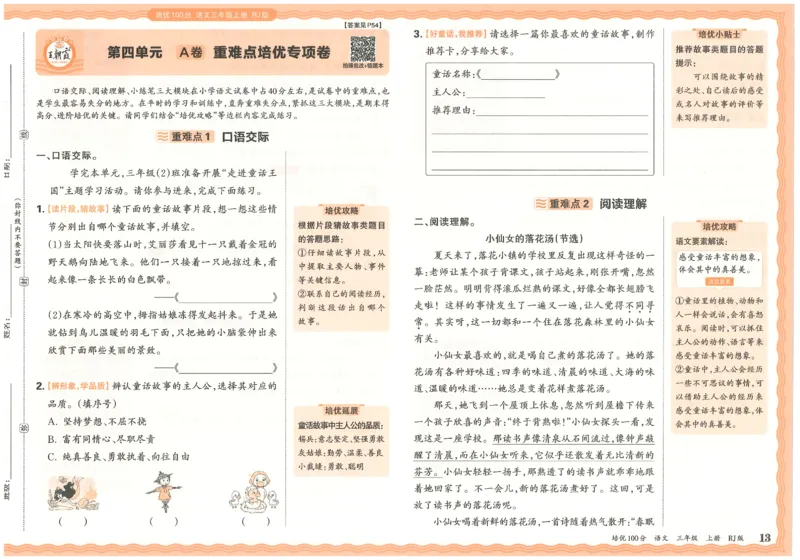 培优100分 语文三年级上册 RJ版
【答案见P54】
王朝霞
第四单元 A卷 重难点培优专项卷
拍照批改+错题本
口语交际、阅读理解、小练笔三大模块在小学语文试卷中占40分左右,是试卷中的重难点,也
是学生最容易失分的地方。在平时的学习和训练中,直奔重难失分点,紧抓这三大模块,是期末得
高分、进阶培优的关键。请同学们结合“培优攻略”等边栏内容完成练习。
重难点1 口语交际
一、口语交际。
学完本单元,三年级(2)班准备开展“走进童话王
国”主题学习活动。请你参与进来,完成下面练习。
1.【读片段,猜故事】读下面的童话故事片段,想一想这些情
节分别出自哪个童话故事,并填空。
(1)当太阳快要落山时,艾丽莎看见十一只戴着金冠的
野天鹅向陆地飞来。他们一只接着一只地掠过来,看
起来像一条长长的白色飘带。
——《 》
(2)在寒冷的高空中,拇指姑娘冻得发起抖来。于是她
就钻到鸟儿温暖的羽毛下面,只把她的小脑袋伸出来
欣赏下面那些美丽的景致。
——《 》
2.【辨形象,学品质】辨认童话故事的主人公,选择其对应的
品质。(填序号)
A. 坚持梦想、不屈不挠
B. 富有同情心、尽职尽责
C. 纯真善良、勇敢执着、向往自由
( ) ( ) ( )
培优攻略
根据片段猜故事类题目
的答题思路:
①仔细读故事片段,从
中提取主要人物、事件
等关键信息。
②联系自己的阅读经历,
判断这段话出自哪个
故事。
培优延展
童话故事中主人公的品质:
锡兵:意志坚定、坚强勇敢
灰姑娘:勤劳、温柔、善良
小裁缝:勇敢、聪明
3.【好童话,我推荐】请选择一篇你最喜欢的童话故事,制作
推荐卡,分享给大家。
童话名称:《 》
主人公:
推荐理由:
培优小贴士
推荐故事类题目的答题
提示:
可以围绕故事的精
彩之处、自己读后的感受
或名人对故事的评价等
来写推荐理由。
重难点2 阅读理解
二、阅读理解。
小仙女的落花汤(节选)
夏天来了,落花小镇的学校里反复出现这样奇怪的一
幕:老师让某个孩子背课文,孩子站起来,刚张开嘴,忽然
一脸茫然。明明背得滚瓜烂熟的课文,好像全都长翅膀飞
走啦!这样的事情发生了一遍又一遍,让人觉得不同寻
常。其实呀,这一切都和一个住在落花森林里的小仙女
有关。
小仙女最喜欢的,就是喝自己煮的落花汤了。她的落
花汤有各种好味道:四季的味道、清晨的味道、大海的味
道、温暖的味道……她总是变着花样煮落花汤。
那天,她飞到一个屋顶上休息,忽然听到屋檐下传来
一个孩子欣喜的声音:“终于背熟啦!”小仙女探头一看,发
现这是一座学校。那读书声像清泉从石间流过,像钟声敲
醒了清晨,而在小仙女听来,它似乎还散发着无比清新的
芬芳。小仙女轻轻一扬手,那熟透了的读书声就乖乖地跟
着她回家了。不一会儿,新的落花汤煮好了。这回,可是
放了读书声的落花汤呢。
小仙女喝着新鲜的落花汤,一首诗随着热气散开:“春眠
培优攻略
语文要素解读:
感受童话丰富的想象,
体会其中的真善美。
①童话里的植物、动物和
人一样会说话,会有喜怒
哀乐。阅读时,可以抓住
主人公的动作、语言等来
感受童话丰富的想象。
②童话中,主人公会经历
一些不可思议的事情,可
以借助主人公的经历来
感受童话丰富的想象,体
会其中的真善美。
日期:
(你封线内不要答题)
姓名:
班级:
线
封
密
培优100分 语文 三年级 上册 RJ版 13